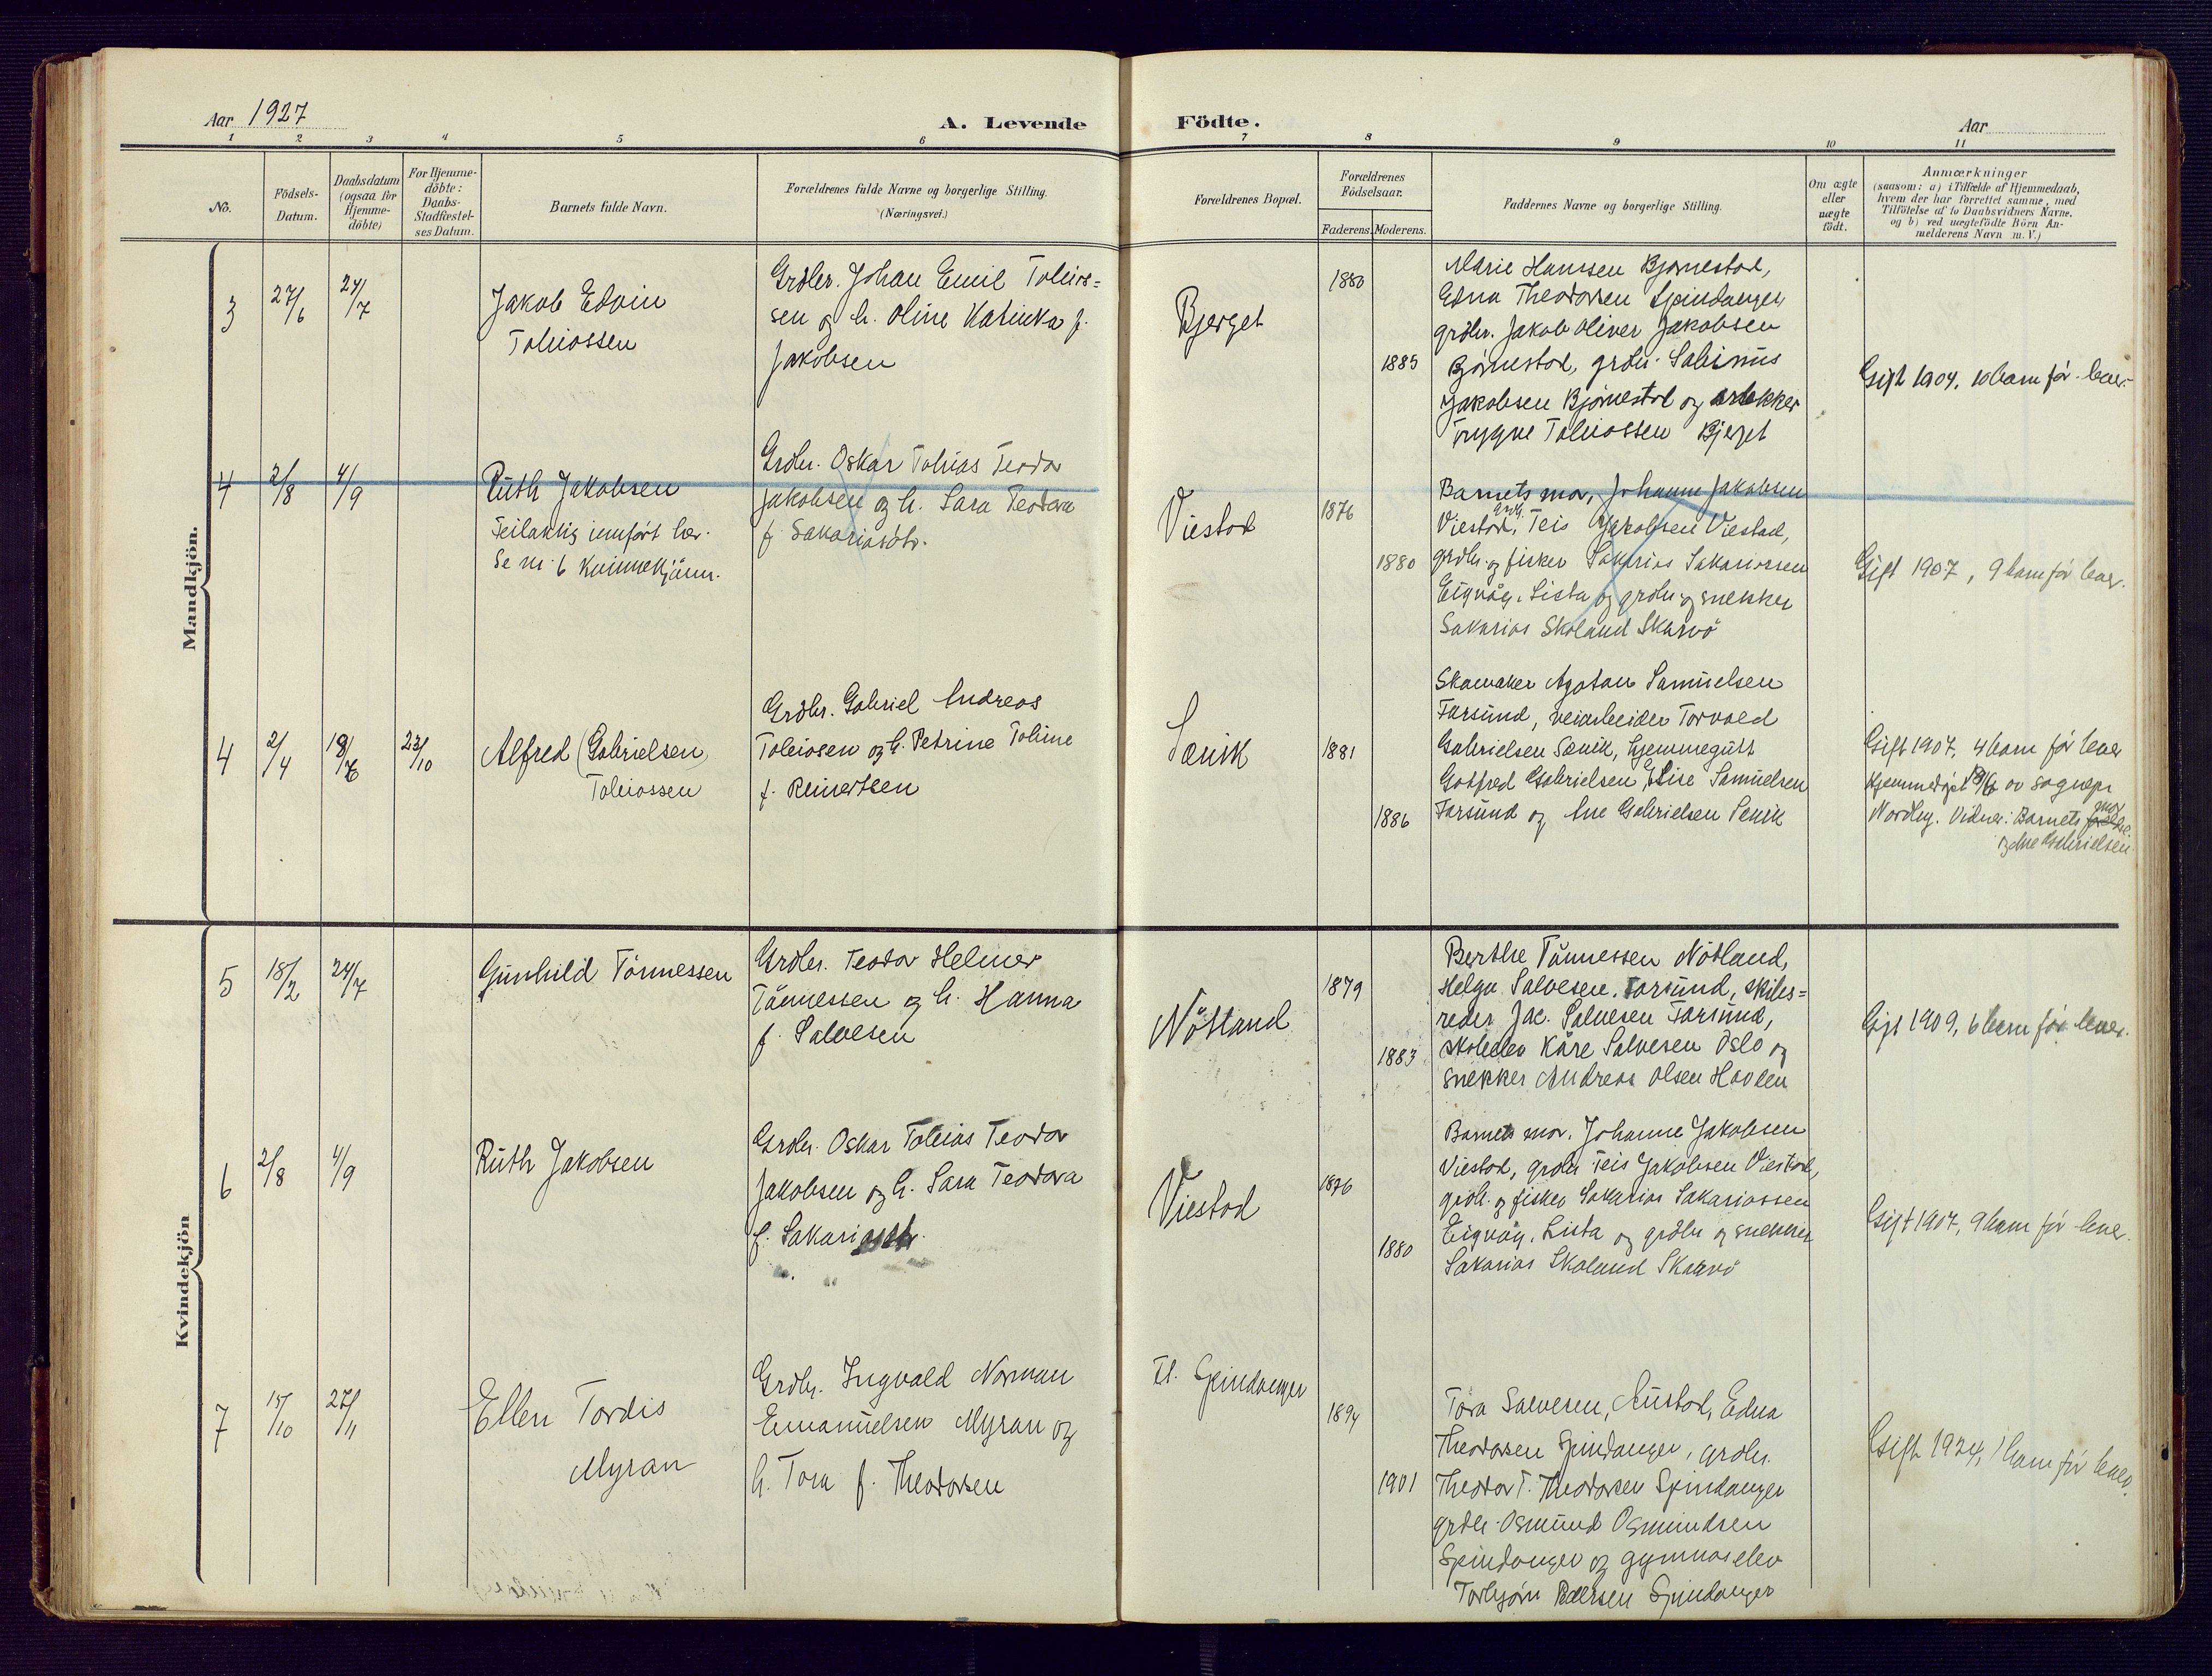 Aar 1927
A. Levende
Födte.
Aar
1 2 3 4 5 6 7 8 9 10 11
No.
Födsels-
Datum.
Daabsdatum
(ogsaa for
Hjemme-
döbte)
For Hjemme-
döbte:
Daabs-
Stadfæstel-
ses Datum.
Barnets fulde Navn.
Forældrenes fulde Navne og borgerlige Stilling.
(Næringsvei.)
Forældrenes Bopæl.
Forældrenes
Födselsaar.
Faderens. Moderens.
Faddernes Navne og borgerlige Stilling.
Om ægte
eller
uægte
födt.
Anmærkninger
(saasom: a) i Tilfælde af Hjemmedaab,
hvem der har forrettet samme, med
Tilföielse af to Daabsvidners Navne,
og b) ved uægtefödte Börn An-
melderens Navn m. V.)
Mandkjön.
3
27/6
24/7
Jakob Edvin
Tobiassen
Grdbr. Johan Emil Tobias=
sen og h. Oline Katinka f.
Jakobsen
Bjerget
1880
1885
Marie Hansen Bjørnestad,
Edna Theodorsen Spindanger,
grdbr. Jakob Oliver Jakobsen
Bjørnestad, grdbr. Salinius
Jakobsen Bjørnestad og
Trygve Tobiassen Bjerget
Gift 1904, 10 barn før. lever.
4
2/8
4/9
Ruth Jakobsen
Feilaktig innført her.
Se nr. 6 Kvinnekjønn.
Grdbr. Oskar Tobias Teodor
Jakobsen og h. Sara Teodora
f. Sakariasdtr.
Viestad
1876
1880
Barnets mor, Johanne Jakobsen
Viestad, grdb. Teis Jakobsen Viestad,
grdbr. og fisker Sakarias Sakariassen
Eigvåg, Lista og grdbr og snekker
Sakarias Skoland Skarvø
Gift 1907, 9 barn før lever.
4
2/4
18/6
23/10
Alfred (Gabrielsen)
Tobiassen
Grdbr. Gabriel Andreas
Tobiasen og h. Petrine Tobine
f. Reinertsen
Sænik
1881
1886
Skomaker Agaton Samuelsen
Farsund, veiarbeider Torvald
Gabrielsen Sænik, hjemmegutt
Gotfred Gabrielsen, Elise Samuelsen
Farsund og Ane Gabrielsen Senik
Gift 1907, 4 barn før lever
Hjemmedøpt 18/6 av sognepr
Nordby. Vidner: Barnets mor
og Ane Gabrielsen
Kvindekjön
5
18/2
24/7
Gunhild Tönnessen
Grdbr. Teodor Helmer
Tönnessen og h. Hanna
f. Salvesen
Nötland
1879
1883
Berthe Tönnessen Nötland,
Helga Salvesen, Farsund, skibs=
reder Jac. Salvesen Farsund,
skoleelev Kåre Salvesen Oslo og
snekker Andreas Olsen Haalen
Gift 1909, 6 barn før lever.
6
2/8
4/9
Ruth Jakobsen
Grdbr. Oskar Tobias Teodor
Jakobsen og h. Sara Teodora
f. Sakariasdtr.
Viestad
1876
1880
Barnets mor, Johanne Jakobsen
Viestad, grdbr Teis Jakobsen Viestad,
grdb. og fisker Sakarias Sakariassen
Eigvåg, Lista og grdbr og snekker
Sakarias Skoland Skarvø
Gift 1907, 9 barn før lever.
7
15/10
27/11
Ellen Tordis
Myran
Grdbr. Ingvald Norman
Emanuelsen Myran og
h. Tora f. Theodorsen
Spindanger
1894
1901
Tora Salvesen, Austad, Edna
Theodorsen Spindanger, grdbr.
Theodor T. Theodorsen Spindanger
grdbr. Osmund Osmundsen
Spindanger og gymnaselev
Torbjørn Pedersen Spindanger
Gift 1924, 1 barn før lever.